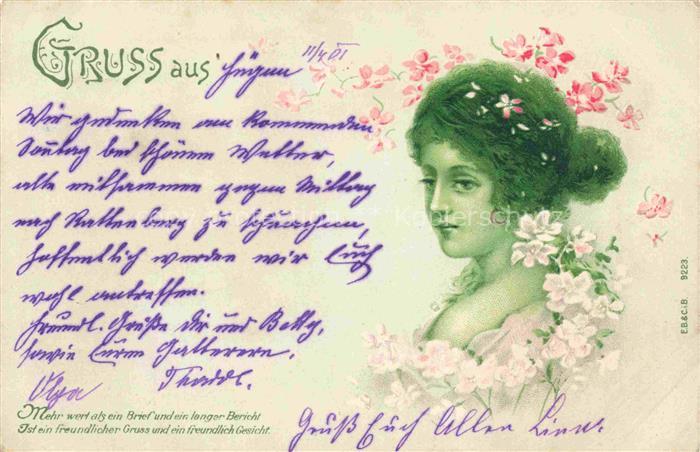 Gruss aus Hagen 11/4 01
Wir gedenken am kommenden
Sonntag bei schönem Wetter,
alle mitsammen gegen Mittag
nach Rattenberg zu schauchen,
hoffentlich werden wir Euch
wohl antreffen.
Freundl. Grüße Dir und Betty,
sowie Eurem
Olga
Mehr wert als ein Brief und ein langer Bericht
Ist ein freundlicher Gruss und ein freundlich Gesicht.
Gruß Euch Allen
E.B.&C.i.B. 9223.